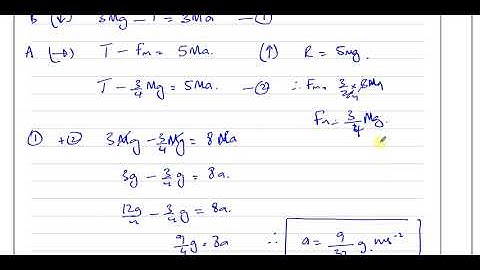 B (↓) 3Mg - T = 3Ma — ①
A (→) T - Fₘ = 5Ma. (↑) R = 5Mg.
T - 3/4 Mg = 5Ma. — ② ∴ Fₘ =
Fₘ = 3/4 Mg.
① + ② 3Mg - 3/4 Mg = 8Ma
3g - 3/4 g = 8a.
12g/4 - 3/4 g = 8a.
9/4 g = 8a ∴ a = 9/32 g ms⁻²